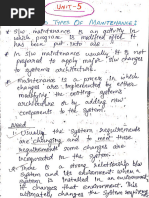 UNIT-5
TYPES OF MAINTENANCE:
* S/w maintenance is an activity in
which program is modified after it
has been put into use.
* In s/w maintenance usually it is not
preferred to apply major s/w changes
system's architecture.
* Maintenance is a process in which
changes are implemented by either
modifying the existing system's
architecture or by adding new
components to the system.
Need
* Usually the system requirements
are changing and to meet
requirements some changes are
incorporated in the system.
* There is a strong relationship b/w
system and its environment. when a
system is installed in an environment,
it changes that environment. This
ultimately changes the system requirements